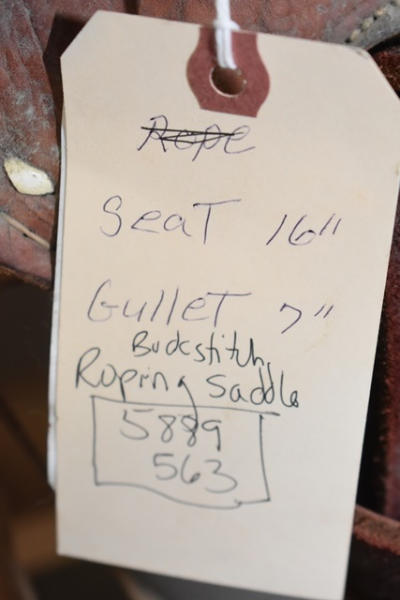 Rope
Seat 16"
Gullet 7"
Buckstitch
Roping Saddle
5889
563